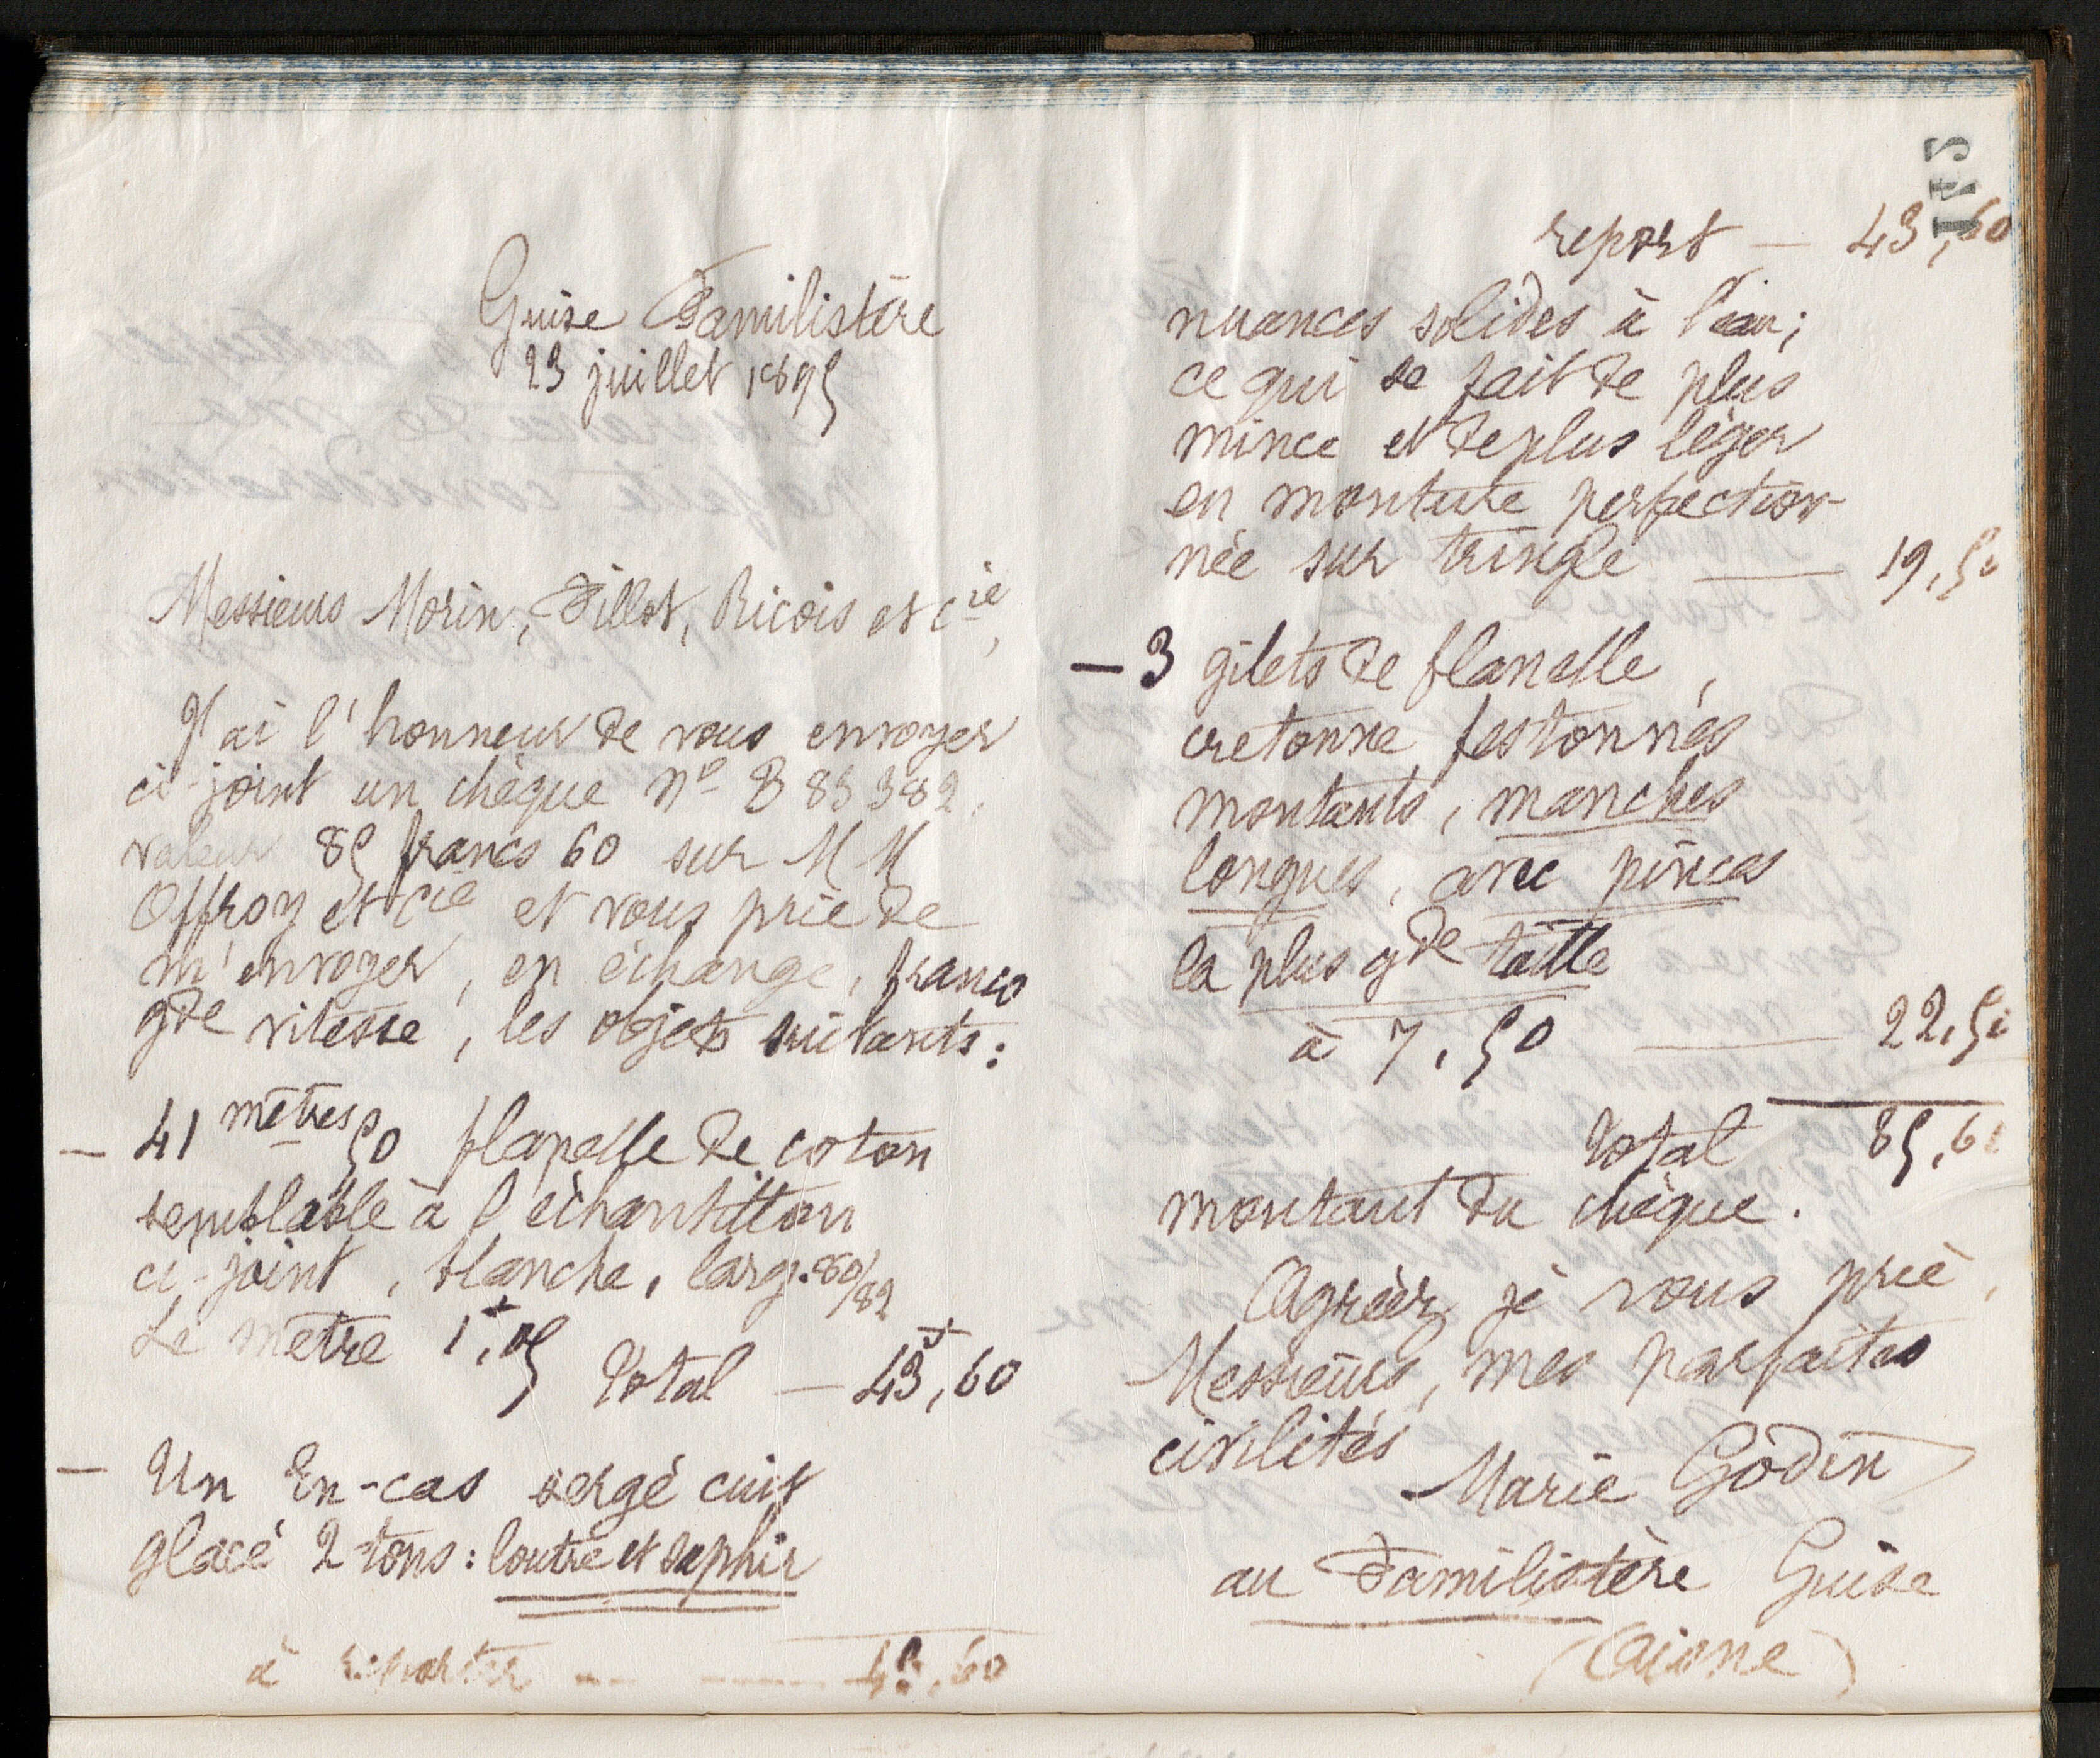 Guise Familistère
23 juillet 1895
Messieurs Morin, Fillot, Ricois et Cie,
J'ai l'honneur de vous envoyer
ci-joint un chèque no B 83 382,
valeur 85 francs 60 sur M M
Offroy et Cie et vous prie de
m'envoyer, en échange, franco
gde vitesse, les objets suivants:
— 41 mètres 50 flanelle de coton
semblable à l'échantillon
ci-joint, blanche, larg. 80/82
Le mètre 1f,05 Total — 43f,60
— Un En-cas sergé cuit
glacé 2 tons: loutre et saphir
à reporter — 43,60
report — 43,60
nuances solides à l'eau;
ce qui se fait de plus
mince et de plus léger
en monture perfection-
née sur tringle — 19,50
— 3 gilets de flanelle,
cretonne festonnés
montants, manches
longues, avec pinces
la plus gde taille
à 7,50 — 22,50
Total 85,60
montant du chèque.
Agréer je vous prie,
Messieurs, mes parfaites
civilités
Marie Godin
au Familistère Guise
(Aisne)